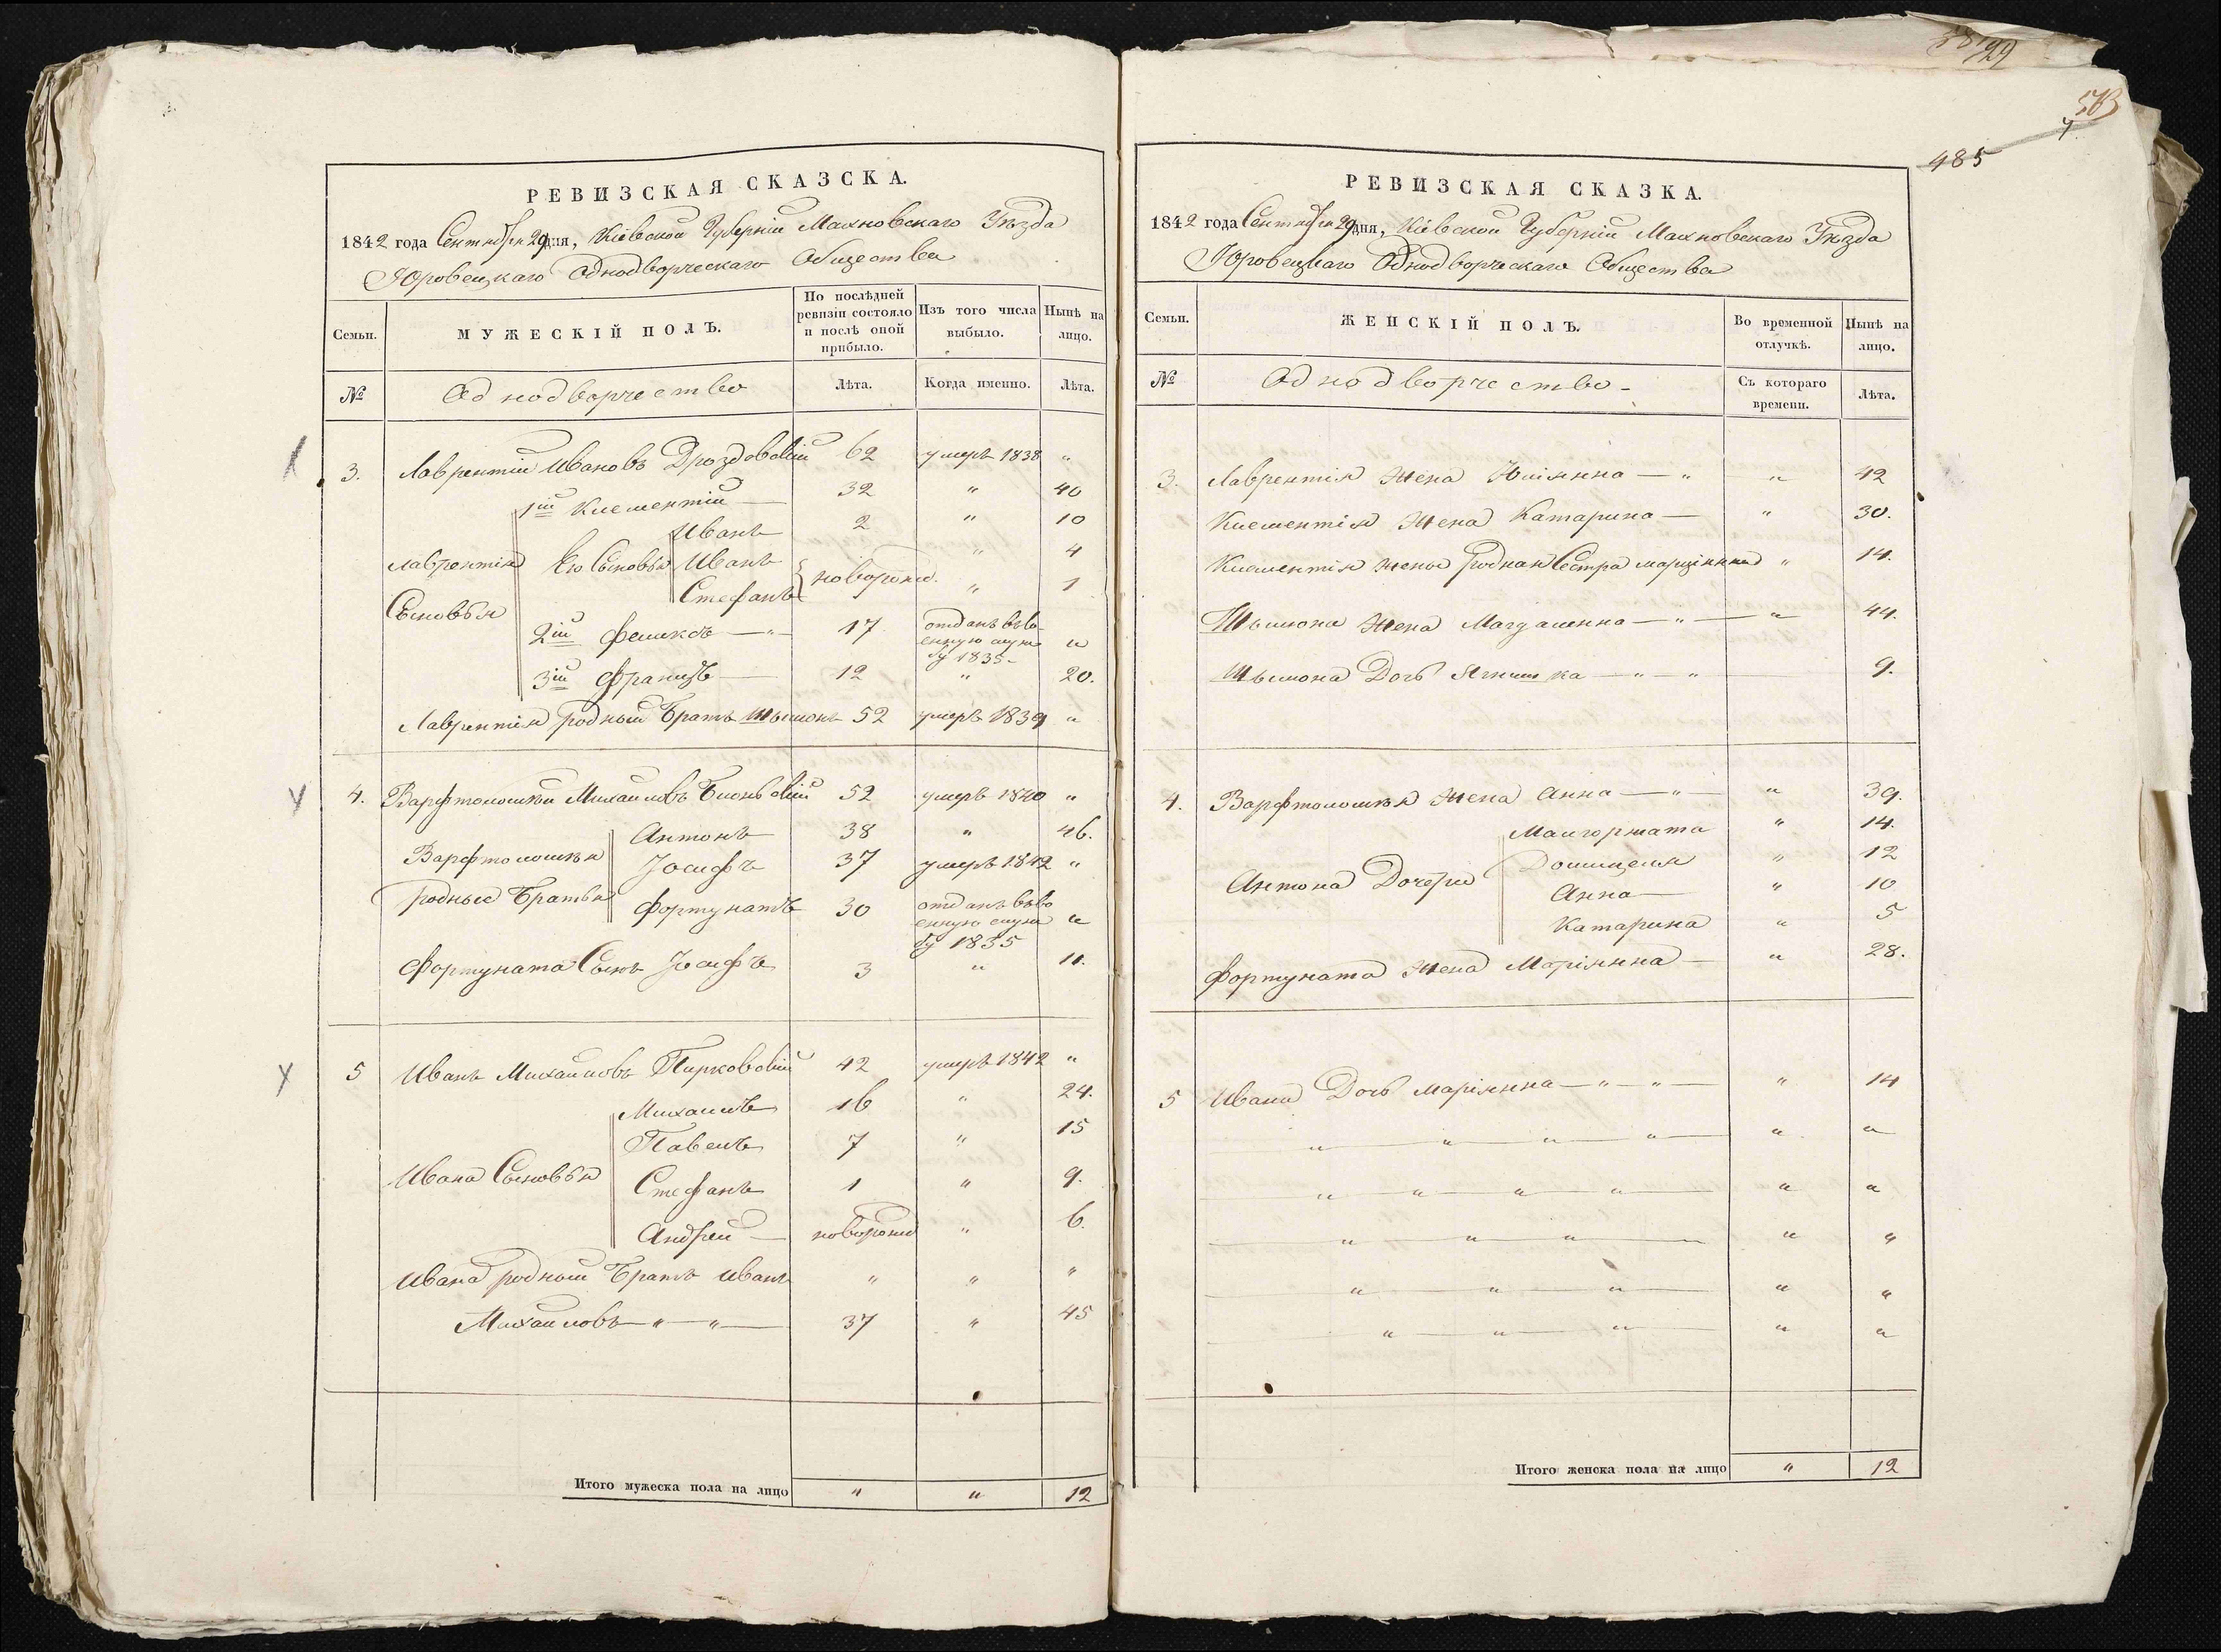 РЕВИЗСКАЯ СКАЗСКА.
1842 года Сентября 29 дня, Кіевской Губерніи Махновскаго Уѣзда
Юровецкаго Однодворческаго Общества
Семьи.
МУЖЕСКІЙ ПОЛЪ.
По послѣдней ревизіи состояло и послѣ оной прибыло.
Изъ того числа выбыло.
Нынѣ на лицо.
№
Однодворчество
Лѣта.
Когда именно.
Лѣта.
3. Лаврентій Ивановъ Дроздовскій 62 умеръ 1838 "
1й Климентій — 32 " 40
Иванъ 2 " 10
Лаврентія Его Сыновья Иванъ новорожд. " 4
Сыновья Стефанъ " 1
2й Феликсъ — " — 17 отданъ въ во
енную служ "
бу 1835 -
3й Францъ — 12 " 20.
Лаврентія родный Братъ Шымонъ 52 умеръ 1839 "
4. Варфтоломѣй Михайловъ 52 умеръ 1840 "
Антонъ 38 " 46.
Варфтоломѣя Іосифъ 37 умеръ 1842 "
родные Братья Фортунатъ 30 отданъ въ во
енную служ "
бу 1835
Фортуната Сынъ Іосифъ 3 " 11.
5 Иванъ Михайловъ Пирковскій 42 умеръ 1842 "
Михаилъ 16 " 24.
Павелъ 7 " 15
Ивана Сыновья Стефанъ 1 " 9.
Андрей — новорожд " 6.
Ивана родный Братъ Иванъ " " "
Михайловъ — " — " — 37 " 45
Итого мужеска пола на лицо " " 12
58 99
513
4.
485
РЕВИЗСКАЯ СКАЗКА.
1842 года Сентября 29 дня, Кіевской Губерніи Махновскаго Уѣзда
Юровецкаго Однодворческаго Общества
Семьи.
ЖЕНСКІЙ ПОЛЪ.
Во временной отлучкѣ.
Нынѣ на лицо.
№
Однодворчество -
Съ котораго времени.
Лѣта.
3. Лаврентія жена Юліянна — " — " 42
Климентія жена Катарина — " 30.
Климентія жены родная Сестра Марціянна " 14.
Шымона жена Магдаленна — " — " 44.
Шымона Дочь Ягнишка — " — " 9.
4. Варфтоломѣя жена Анна — " — " 39.
Малгоржата " 14.
Антона Дочери Доминцеля " 12
Анна — " 10
Катарина " 5
Фортуната жена Маріянна — " 28.
5 Ивана Дочь Маріянна — " — " — " 14
" " " " " "
" " " " " "
" " " " "
" " " " "
" " " " "
Итого женска пола на лицо " 12